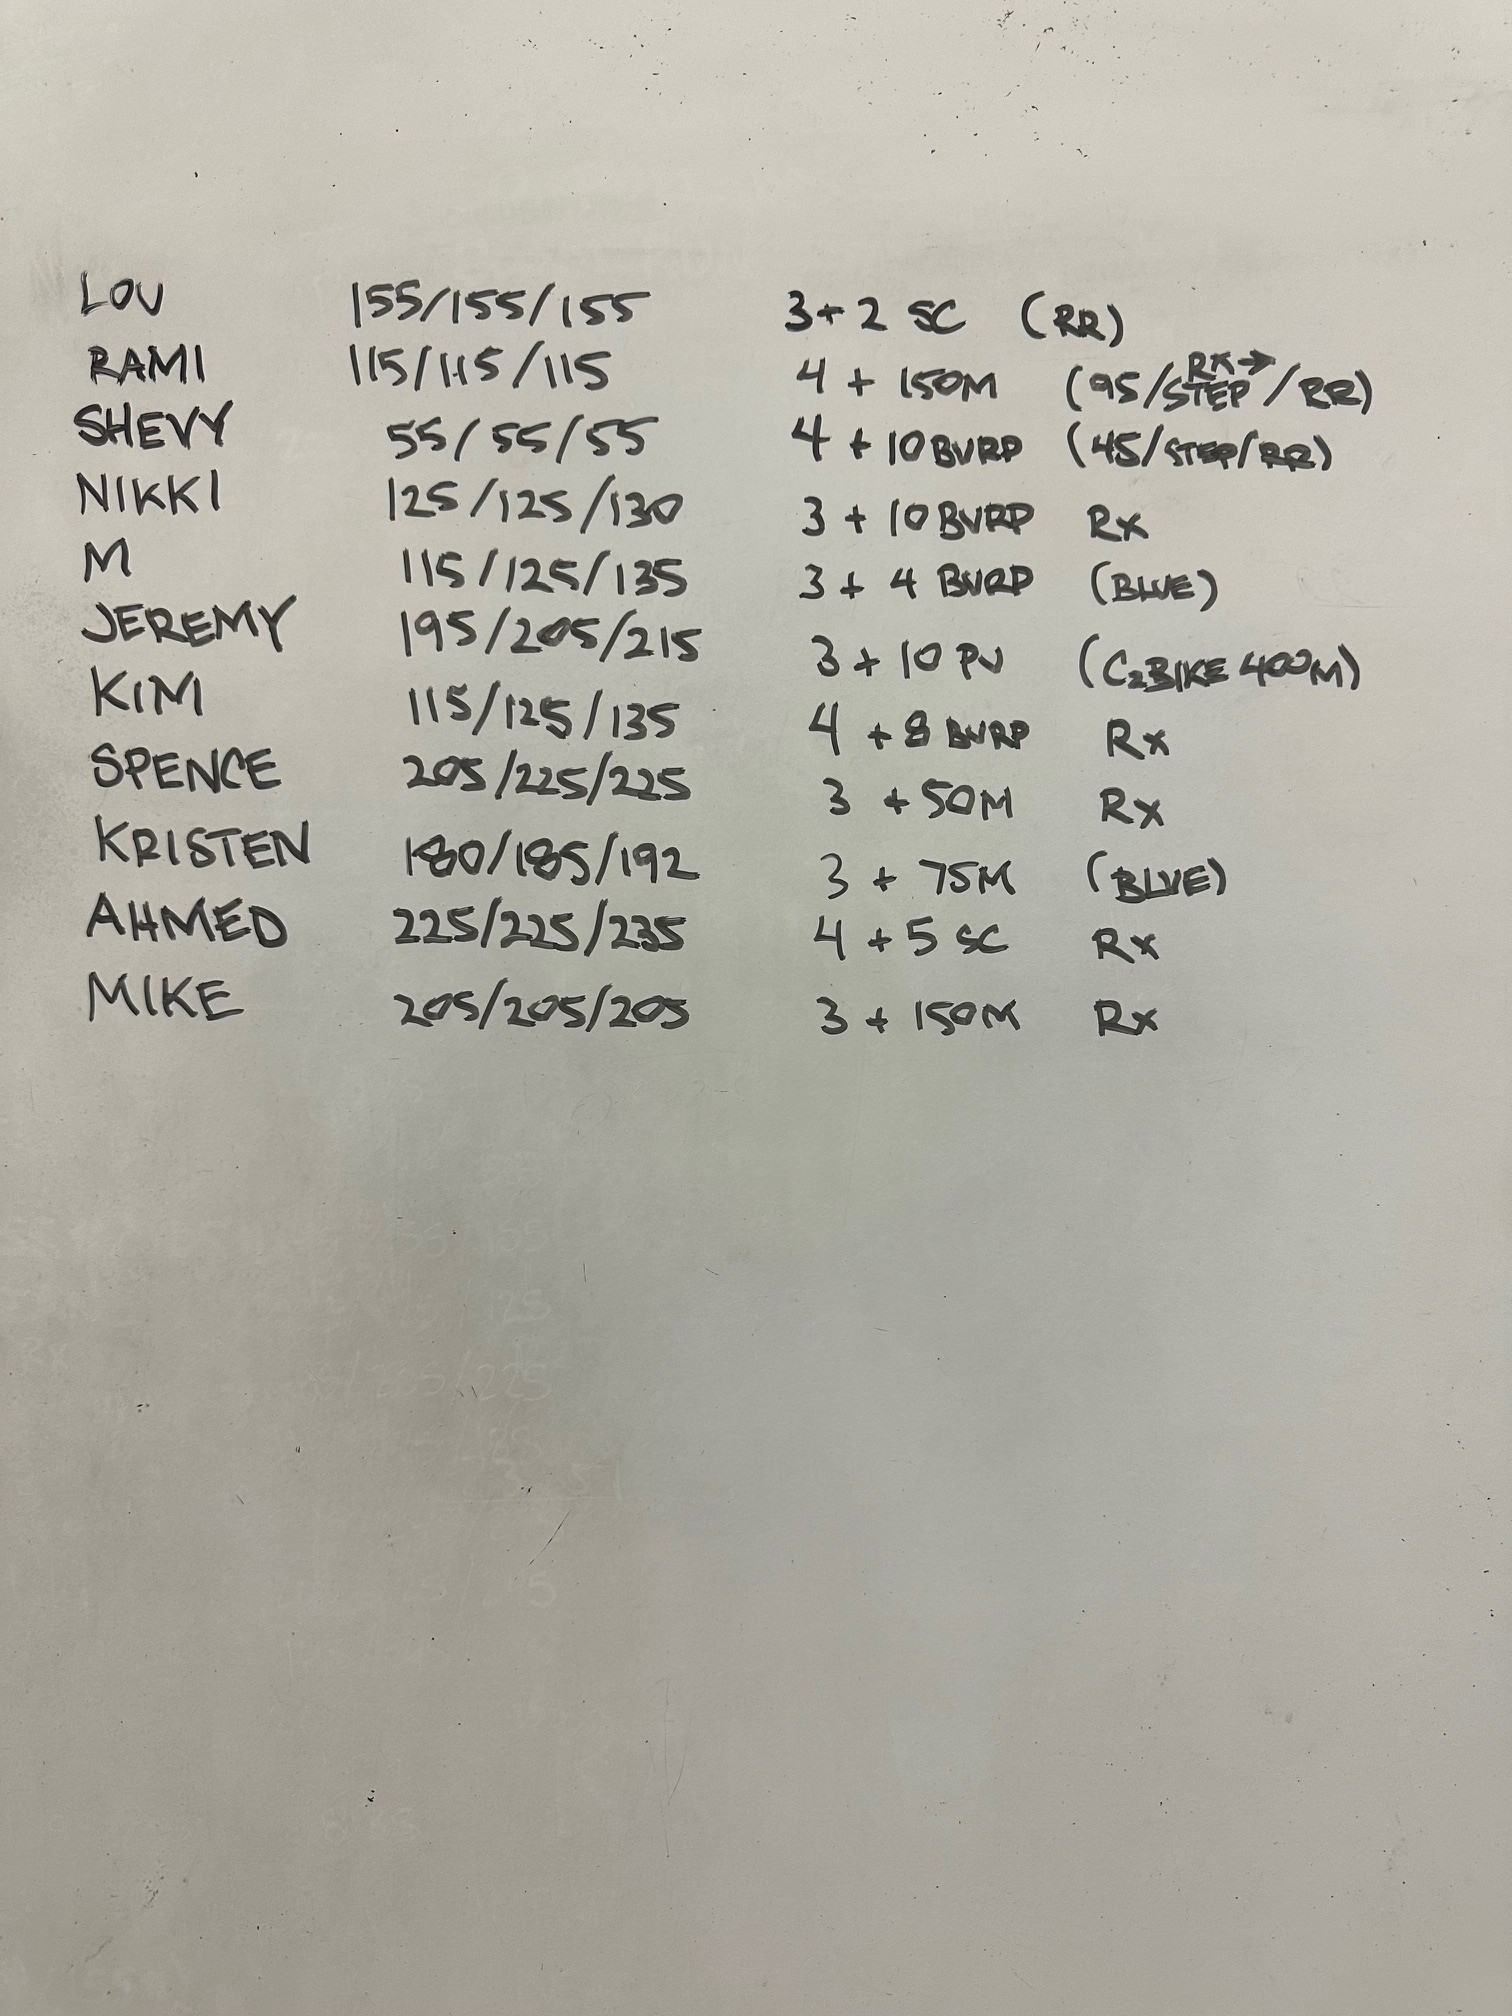 LOU 155/155/155 3+2 SC (RR)
RAMI 115/115/115 4 + 150M (95/STEP RX→/RR)
SHEVY 55/55/55 4 + 10 BURP (45/STEP/RR)
NIKKI 125/125/130 3 + 10 BURP Rx
M 115/125/135 3 + 4 BURP (BLUE)
JEREMY 195/205/215 3 + 10 PU (C2BIKE 400M)
KIM 115/125/135 4 + 8 BURP Rx
SPENCE 205/225/225 3 + 50M Rx
KRISTEN 180/185/192 3 + 75M (BLUE)
AHMED 225/225/235 4 + 5 SC Rx
MIKE 205/205/205 3 + 150M Rx